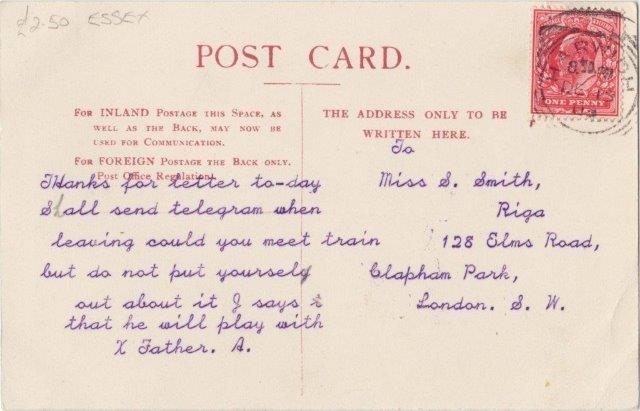 £2.50 ESSEX
POST CARD.
FOR INLAND POSTAGE THIS SPACE, AS
WELL AS THE BACK, MAY NOW BE
USED FOR COMMUNICATION.
FOR FOREIGN POSTAGE THE BACK ONLY.
(Post Office Regulation).
THE ADDRESS ONLY TO BE
WRITTEN HERE.
THanks for letter to-day
Shall send telegram when
leaving could you meet train
but do not put yourself
out about it J says
that he will play with
X Father. A.
To
Miss S. Smith,
Riga
128 Elms Road,
Clapham Park,
London. S. W.
HARWICH
ONE PENNY